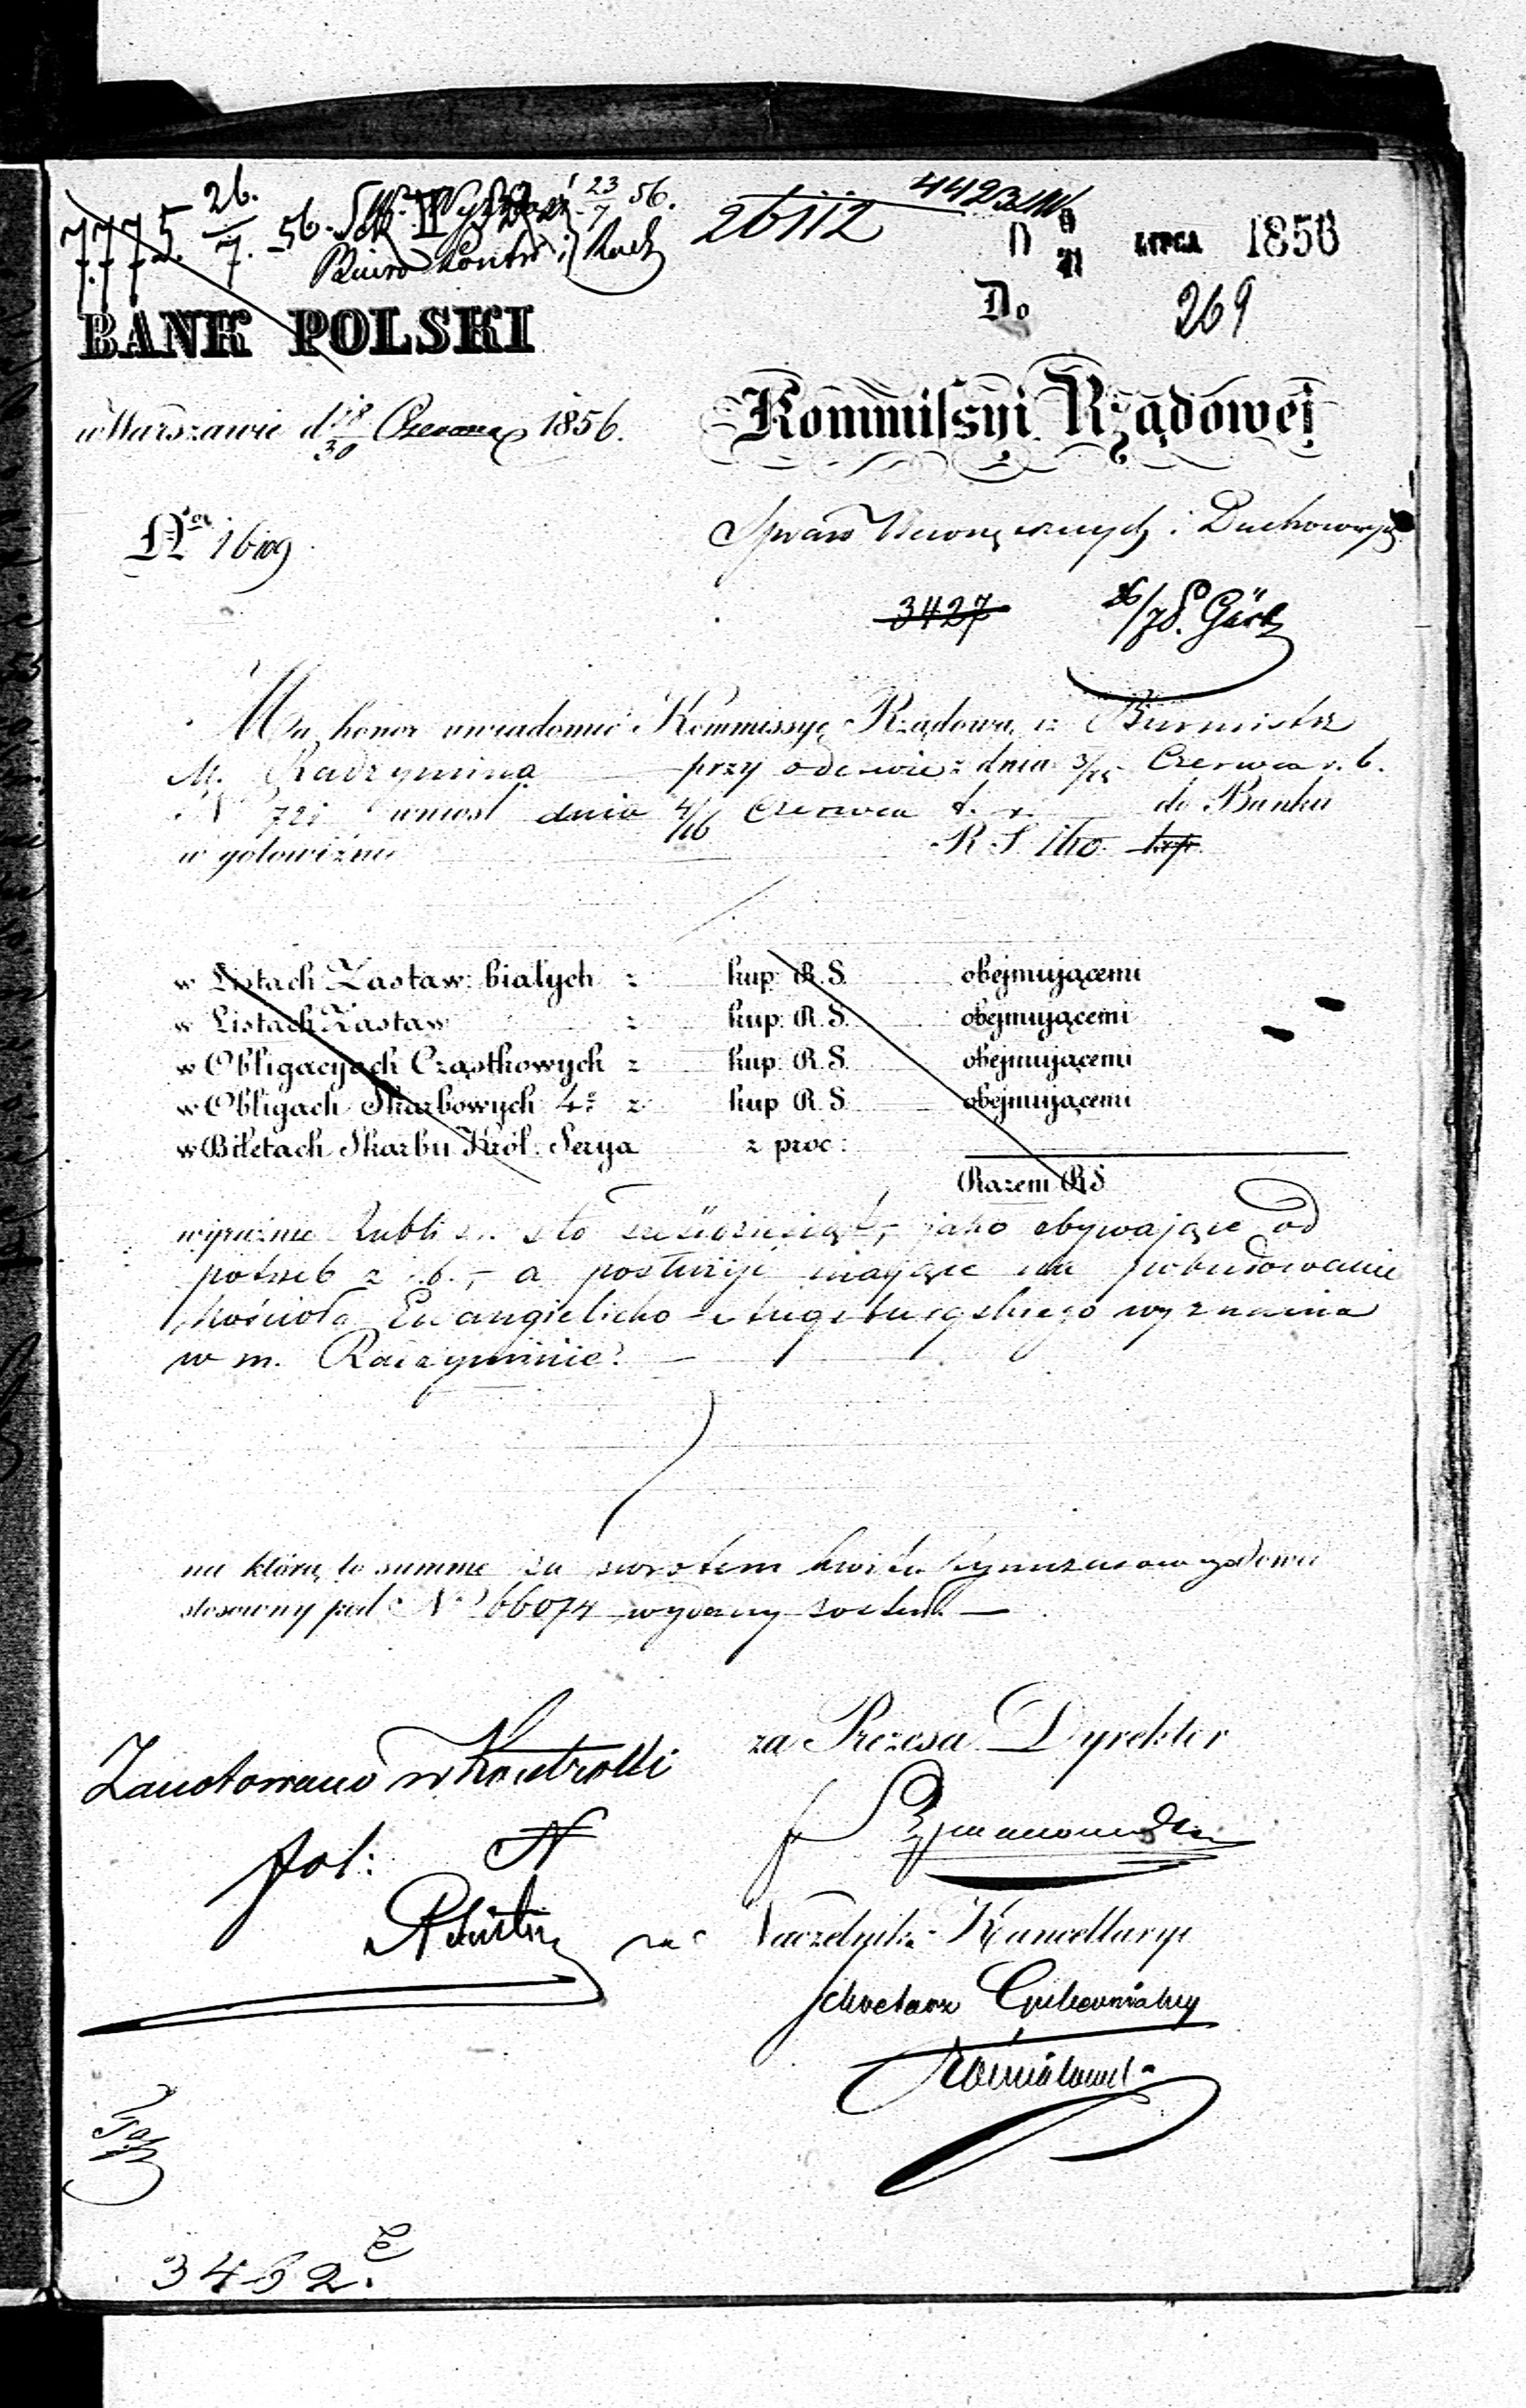 7775. 26./7. 56.
23/7 56.
26112
4423
D 9/21 LIPCA 1856
Do 269
BANK POLSKI
w Warszawie d 18/30 Czerwca 1856.
Kommissyi Rządowej
Spraw Wewnętrznych i Duchownych
3427
Ma honor uwiadomić Kommissyę Rządową iż Burmistrz
M. Radzymina przy odezwie z dnia 3/15 Czerwca r. b.
N 721 wniósł dnia 4/16 Czerwca t. r. do Banku
w gotowiźnie R S 160.
w Listach Zastaw: białych z kup: R. S. obejmującemi
w Listach Zastaw z kup: R. S. obejmującemi
w Obligacyach Cząstkowych z kup: R. S. obejmującemi
w Obligach Skarbowych 4% z kup R. S. obejmującemi
w Biletach Skarbu Król: Serya z proc:
Razem RS
wyraźnie Rubli sr. sto sześćdziesiąt, jako zbywające od
potrzeb z r. b., a posłużyć mające na pobudowanie
kościoła Ewangielicko-Augsburgskiego wyznania
w m. Radzyminie.
na którą to summę za zwrotem kwitu tymczasowego dowód
stosowny pod No 66074 wydany został
za Prezesa Dyrektor
Zanotowano w Kontrolli
fol: N
za Naczelnika Kancellaryi
Sekretarz Gubernialny
3462.